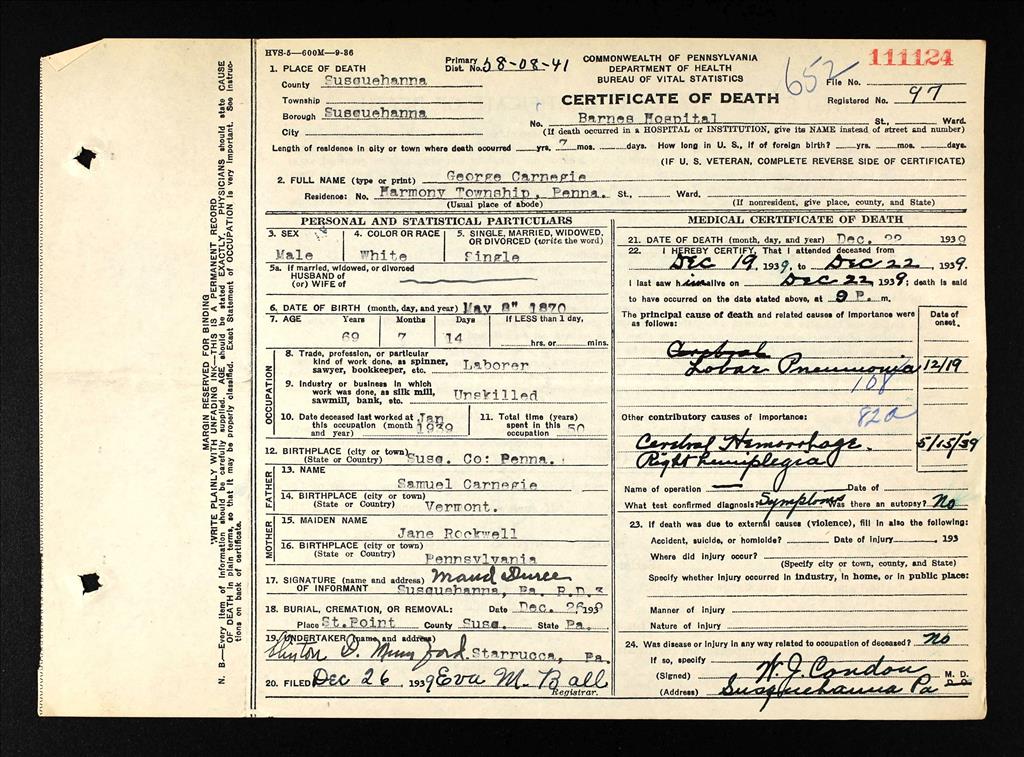 HVS-5—600M—9-36
1. PLACE OF DEATH
County Susquehanna
Township
Borough Susquehanna
City
Primary Dist. No. 58-08-41
COMMONWEALTH OF PENNSYLVANIA
DEPARTMENT OF HEALTH
BUREAU OF VITAL STATISTICS
CERTIFICATE OF DEATH
652
111124
File No.
Registered No. 97
No. Barnes Hospital St., Ward.
(If death occurred in a HOSPITAL or INSTITUTION, give its NAME instead of street and number)
Length of residence in city or town where death occurred yrs. 7 mos. days. How long in U. S., if of foreign birth? yrs. mos. days.
(IF U. S. VETERAN, COMPLETE REVERSE SIDE OF CERTIFICATE)
2. FULL NAME (type or print) George Carnegie
Residence: No. Harmony Township, Penna. St., Ward.
(Usual place of abode) (If nonresident, give place, county, and State)
PERSONAL AND STATISTICAL PARTICULARS
3. SEX
Male
4. COLOR OR RACE
White
5. SINGLE, MARRIED, WIDOWED, OR DIVORCED (write the word)
Single
5a. If married, widowed, or divorced
HUSBAND of
(or) WIFE of
6. DATE OF BIRTH (month, day, and year) May 8" 1870
7. AGE Years Months Days If LESS than 1 day,
69 7 14 hrs. or mins.
OCCUPATION
8. Trade, profession, or particular
kind of work done, as spinner,
sawyer, bookkeeper, etc. Laborer
9. Industry or business in which
work was done, as silk mill,
sawmill, bank, etc. Unskilled
10. Date deceased last worked at
this occupation (month and year) Jan 1939
11. Total time (years)
spent in this
occupation 50
12. BIRTHPLACE (city or town)
(State or Country) Susq. Co: Penna.
FATHER
13. NAME
Samuel Carnegie
14. BIRTHPLACE (city or town)
(State or Country) Vermont.
MOTHER
15. MAIDEN NAME
Jane Rockwell
16. BIRTHPLACE (city or town)
(State or Country) Pennsylvania
17. SIGNATURE (name and address)
OF INFORMANT Maud
Susquehanna, Pa. R.D.3
18. BURIAL, CREMATION, OR REMOVAL: Date Dec. 26 1939
Place St.Point County Susq. State Pa.
19. UNDERTAKER (name and address)
Mumford Starrucca, Pa.
20. FILED Dec 26 1939 Eva M. Ball
Registrar.
MEDICAL CERTIFICATE OF DEATH
21. DATE OF DEATH (month, day, and year) Dec. 22 1939
22. I HEREBY CERTIFY, That I attended deceased from
Dec 19, 1939, to Dec 22, 1939.
I last saw him alive on Dec 22 1939; death is said
to have occurred on the date stated above, at 9 P. m.
The principal cause of death and related causes of importance were as follows:
Date of onset.
Cerebral
Lobar Pneumonia 12/19
108
82a
Other contributory causes of importance:
Cerebral Hemorrhage. 5/15/39
Right hemiplegia
Name of operation — Date of
What test confirmed diagnosis? Symptoms Was there an autopsy? No
23. If death was due to external causes (violence), fill in also the following:
Accident, suicide, or homicide? Date of injury 193
Where did injury occur?
(Specify city or town, county, and State)
Specify whether injury occurred in industry, in home, or in public place:
Manner of injury
Nature of injury
24. Was disease or injury in any way related to occupation of deceased? No
If so, specify
(Signed) W. J. Condon M. D.
(Address) Susquehanna Pa
MARGIN RESERVED FOR BINDING
WRITE PLAINLY WITH UNFADING INK—THIS IS A PERMANENT RECORD
N. B.—Every item of information should be carefully supplied. AGE should be stated EXACTLY. PHYSICIANS should state CAUSE
OF DEATH in plain terms, so that it may be properly classified. Exact Statement of OCCUPATION is very important. See instruc-
tions on back of certificate.